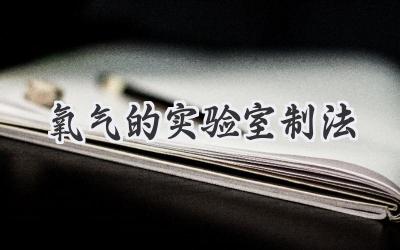 氧气的实验室制法